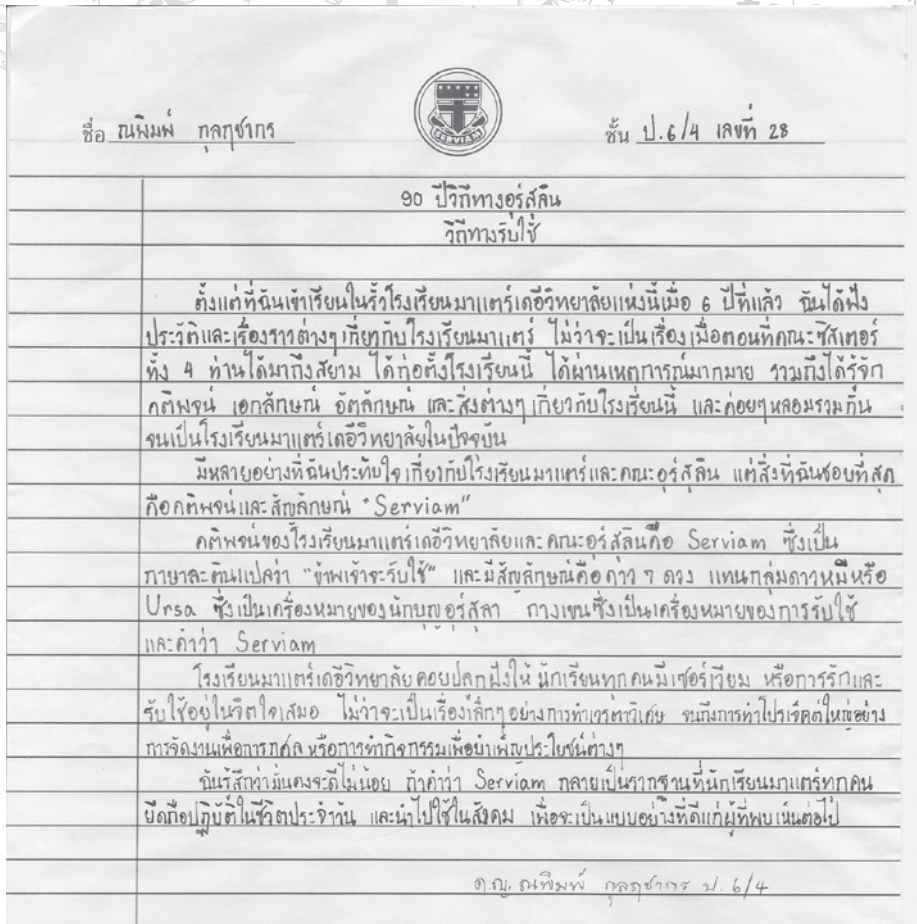 ชื่อ ณพิมพ์ กุลฤชากร
SERVIAM
ชั้น ป.6/4 เลขที่ 28
90 ปีวิถีทางอุร์สุลิน
วิถีทางรับใช้
ตั้งแต่ที่ฉันเข้าเรียนในรั้วโรงเรียนมาแตร์เดอีวิทยาลัยแห่งนี้เมื่อ 6 ปีที่แล้ว ฉันได้ฟัง
ประวัติและเรื่องราวต่างๆเกี่ยวกับโรงเรียนมาแตร์ ไม่ว่าจะเป็นเรื่องเมื่อตอนที่คณะซิสเตอร์
ทั้ง 4 ท่านได้มาถึงสยาม ได้ก่อตั้งโรงเรียนนี้ ได้ผ่านเหตุการณ์มากมาย รวมถึงได้รู้จัก
คติพจน์ เอกลักษณ์ อัตลักษณ์ และสิ่งต่างๆเกี่ยวกับโรงเรียนนี้ และค่อยๆหลอมรวมกัน
จนเป็นโรงเรียนมาแตร์เดอีวิทยาลัยในปัจจุบัน
มีหลายอย่างที่ฉันประทับใจเกี่ยวกับโรงเรียนมาแตร์และคณะอุร์สุลิน แต่สิ่งที่ฉันชอบที่สุด
คือคติพจน์และสัญลักษณ์ "Serviam"
คติพจน์ของโรงเรียนมาแตร์เดอีวิทยาลัยและคณะอุร์สุลินคือ Serviam ซึ่งเป็น
ภาษาละตินแปลว่า "ข้าพเจ้าจะรับใช้" และมีสัญลักษณ์คือดาว 7 ดวง แทนกลุ่มดาวหมีหรือ
Ursa ซึ่งเป็นเครื่องหมายของนักบุญอุร์สุลา กางเขนซึ่งเป็นเครื่องหมายของการรับใช้
และคำว่า Serviam
โรงเรียนมาแตร์เดอีวิทยาลัยคอยปลูกฝังให้นักเรียนทุกคนมีเซอร์เวียม หรือการรักและ
รับใช้อยู่ในจิตใจเสมอ ไม่ว่าจะเป็นเรื่องเล็กๆอย่างการทำเวรตาวิเศษ จนถึงการทำโปรเจ็คต์ใหญ่อย่าง
การจัดงานเพื่อการกุศล หรือการทำกิจกรรมเพื่อบำเพ็ญประโยชน์ต่างๆ
ฉันรู้สึกว่ามันคงจะดีไม่น้อย ถ้าคำว่า Serviam กลายเป็นรากฐานที่นักเรียนมาแตร์ทุกคน
ยึดถือปฏิบัติในชีวิตประจำวัน และนำไปใช้ในสังคม เพื่อจะเป็นแบบอย่างที่ดีแก่ผู้ที่พบเห็นต่อไป
ด.ญ. ณพิมพ์ กุลฤชากร ป.6/4